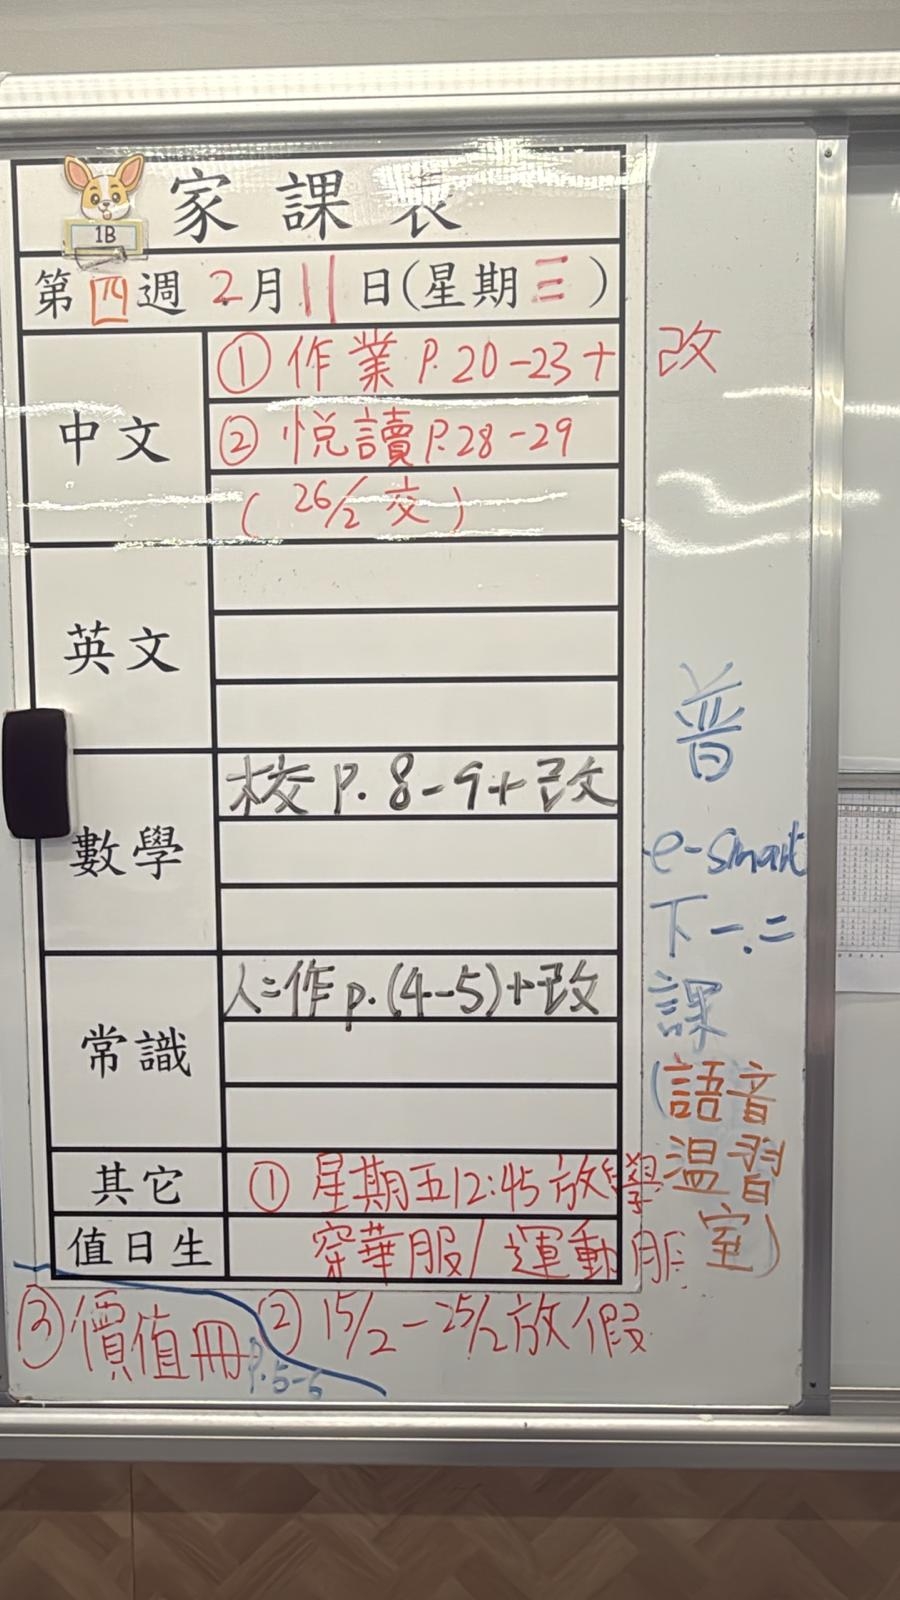 1B
家課表
第四週 2月11日(星期三)
中文
① 作業 P.20-23+改
② 悦讀 P.28-29
(26/2 交)
英文
數學
校 P.8-9+改
常識
人=作 p.(4-5)+改
其它
① 星期五12:45放學
值日生
穿華服/運動服
② 15/2-25/2放假
③ 價值冊 P.5-6
普
e-smart
下一.二
課
(語音
温習
室)